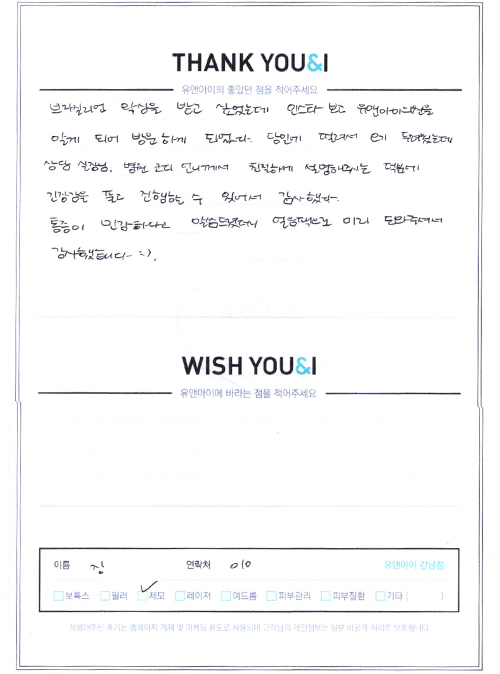 THANK YOU&I
유앤아이의 좋았던 점을 적어주세요
브라질리언 왁싱을 받고 싶었는데 인스타 보고 유앤아이의원을
알게 되어 방문하게 되었다. 당일에
상담 실장님, 병원 언니께서 친절하게 설명해주시는 덕분에
긴장감을 풀고 진행할 수 있어서 감사했다.
통증이 민감하다고 말씀드렸더니 미리 도와주셔서
감사했습니다- =).
WISH YOU&I
유앤아이에 바라는 점을 적어주세요
이름 장 연락처 010 유앤아이 강남점
보톡스 필러 제모 레이저 여드름 피부관리 피부질환 기타 ( )
작성해주신 후기는 홈페이지 게재 및 마케팅 용도로 사용되며 고객님의 개인정보는 일부 비공개 처리로 보호됩니다.